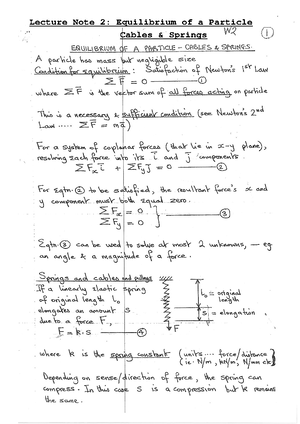 Lecture Note 2: Equilibrium of a Particle
Cables & Springs
W2 ①
EQUILIBRIUM OF A PARTICLE - CABLES & SPRINGS
A particle has mass but negligible size.
Condition for equilibrium : Satisfaction of Newton's 1st Law
Σ F̄ = 0 ——— ①
where Σ F̄ is the vector sum of all forces acting on particle
This is a necessary & sufficient condition (see Newton's 2nd
Law ..... Σ F̄ = mā)
For a system of coplanar forces (that lie in x-y plane),
resolving each force into its ī and j̄ components
ΣFx ī + ΣFy j̄ = 0 ——— ②
For Eqtn. ② to be satisfied, the resultant force's x and
y component must both equal zero.
ΣFx = 0
ΣFy = 0 } ——— ③
Eqtn ③ can be used to solve at most 2 unknowns, — eg
an angle & a magnitude of a force.
Springs and cables and pulleys
If a linearly elastic spring
of original length lo
elongates an amount s
due to a force F,
F = k.s ——— ④
lo = original
length
s = elongation
F
where k is the spring constant (units .... force/distance
ie. N/m, kN/m, N/mm etc)
Depending on sense/direction of force, the spring can
compress. In this case s is a compression but k remains
the same.